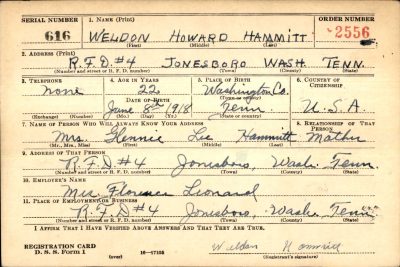 SERIAL NUMBER 1. NAME (Print) ORDER NUMBER
616 WELDON HOWARD HAMMITT 2556
(First) (Middle) (Last)
2. ADDRESS (Print)
R.F.D #4 JONESBORO WASH. TENN.
(Number and street or R. F. D. number) (Town) (County) (State)
3. TELEPHONE 4. AGE IN YEARS 5. PLACE OF BIRTH 6. COUNTRY OF CITIZENSHIP
None 22 Washington Co.
DATE OF BIRTH (Town or county)
June 8th 1918 Tenn. U.S.A
(Exchange) (Number) (Mo.) (Day) (Yr.) (State or country)
7. NAME OF PERSON WHO WILL ALWAYS KNOW YOUR ADDRESS 8. RELATIONSHIP OF THAT PERSON
Mrs. Lee Hammitt Mother
(Mr., Mrs., Miss) (First) (Middle) (Last)
9. ADDRESS OF THAT PERSON
R.F.D #4 Jonesboro, Wash. Tenn.
(Number and street or R. F. D. number) (Town) (County) (State)
10. EMPLOYER'S NAME
Mrs. Florence Leonard
11. PLACE OF EMPLOYMENT OR BUSINESS
R.F.D #4 Jonesboro, Wash. Tenn.
(Number and street or R. F. D. number) (Town) (County) (State)
I AFFIRM THAT I HAVE VERIFIED ABOVE ANSWERS AND THAT THEY ARE TRUE.
REGISTRATION CARD Weldon Hammitt
D. S. S. Form 1 (over) 16—17105 (Registrant's signature)